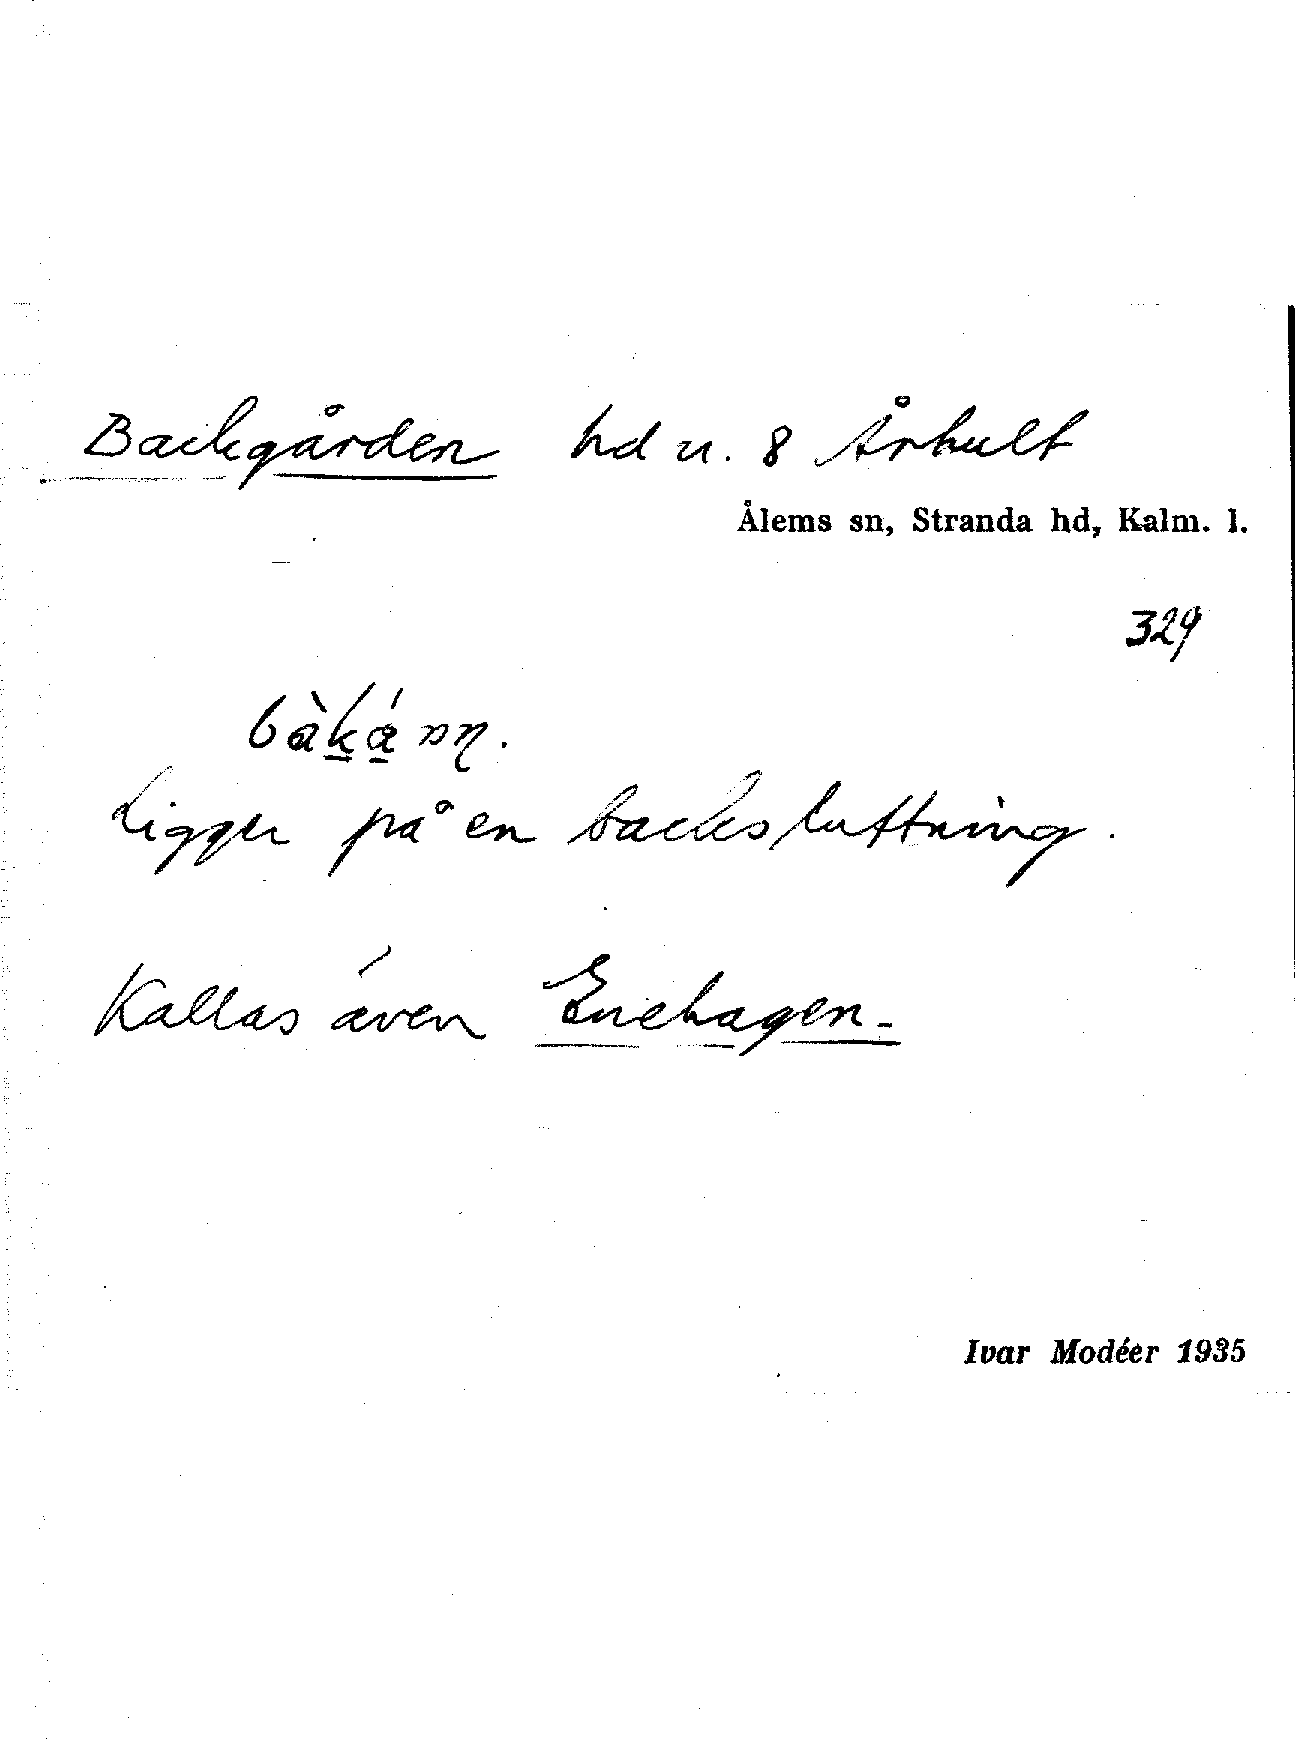 Backgården hd u. 8 Århult
Ålems sn, Stranda hd, Kalm. l.
329
Ligger på en backsluttning.
Kallas även Enehagen.
Ivar Modéer 1935